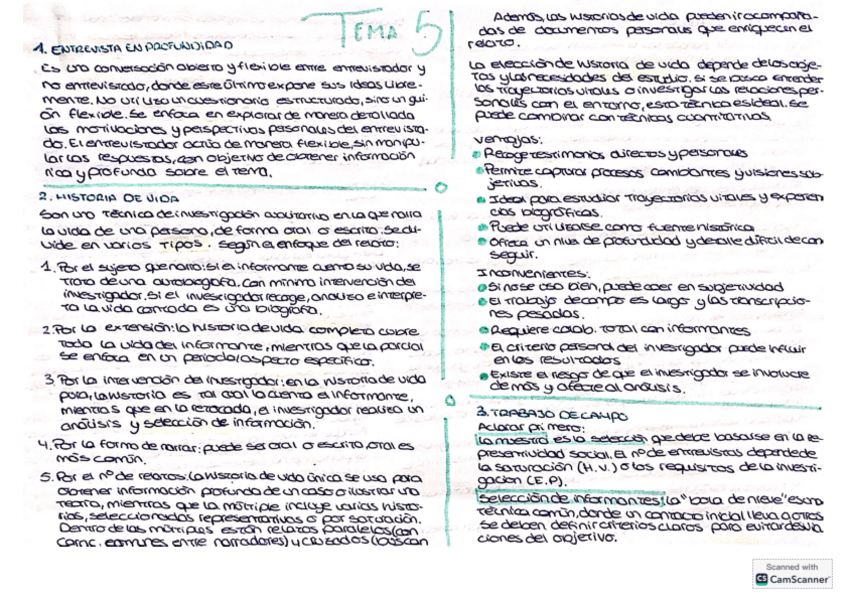 TEMA 5
1. ENTREVISTA EN PROFUNDIDAD
Es una conversación abierta y flexible entre entrevistador y
no entrevistado, donde este último expone sus ideas libre-
mente. No utiliza un cuestionario estructurado, sino un gui-
ón flexible. Se enfoca en explorar de manera detallada
las motivaciones y perspectivas personales del entrevista-
do. El entrevistador actúa de manera flexible, sin manipu-
lar las respuestas, con objetivo de obtener información
rica y profunda sobre el tema.
2. HISTORIA DE VIDA
Son una técnica de investigación cualitativa en la que narra
la vida de una persona, de forma oral o escrita. Se di-
vide en varios tipos. Según el enfoque del relato:
1. Por el sujeto que narra: si el informante cuenta su vida, se
trata de una autobiografía, con mínima intervención del
investigador. Si el investigador recoge, analiza e interpre-
ta la vida contada es una biografía.
2. Por la extensión: la historia de vida completa cubre
toda la vida del informante, mientras que la parcial
se enfoca en un periodo/aspecto específico.
3. Por la intervención del investigador: en la historia de vida
pura, la historia es tal cual la cuenta el informante,
mientras que en la retocada, el investigador realiza un
análisis y selección de información.
4. Por la forma de narrar: puede ser oral o escrita, oral es
más común.
5. Por el nº de relatos: la historia de vida única se usa para
obtener información profunda de un caso o ilustrar una
teoría, mientras que la múltiple incluye varias histo-
rias, seleccionadas representativas o por saturación.
Dentro de las múltiples están relatos paralelos (con
caract. comunes entre narradores) y cruzados (buscan
Además, las historias de vida pueden ir acompaña-
das de documentos personales que enriquecen el
relato.
La elección de historia de vida depende de los obje-
tivos y las necesidades del estudio. Si se busca entender
las trayectorias vitales o investigar las relaciones per-
sonales con el entorno, esta técnica es ideal. Se
puede combinar con técnicas cuantitativas.
Ventajas:
Recoge testimonios directos y personales
Permite capturar procesos cambiantes y visiones sub-
jetivas.
Ideal para estudiar trayectorias vitales y experien
cias biográficas.
Puede utilizarse como fuente histórica
Ofrece un nivel de profundidad y detalle difícil de con
seguir.
Inconvenientes:
Si no se usa bien, puede caer en subjetividad
El trabajo de campo es largo y las transcripcio-
nes pesadas.
Requiere colab. total con informantes
El criterio personal del investigador puede influir
en los resultados
Existe el riesgo de que el investigador se involucre
de más y afecte al análisis.
3. TRABAJO DE CAMPO
Aclarar primero:
La muestra es la selección que debe basarse en la re-
presentividad social. El nº de entrevistas depende de
la saturación (H.V.) o los requisitos de la investi-
gación (E.P).
Selección de informantes: la "bola de nieve" es una
técnica común, donde un contacto inicial lleva a otros
Se deben definir criterios claros para evitar desvia
ciones del objetivo.
Scanned with
CS CamScanner